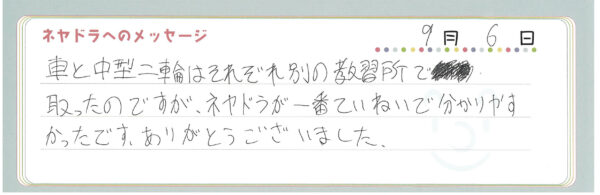 ネヤドラへのメッセージ
9月 6日
車と中型二輪はそれぞれ別の教習所で
取ったのですが、ネヤドラが一番ていねいで分かりやす
かったです。ありがとうございました。